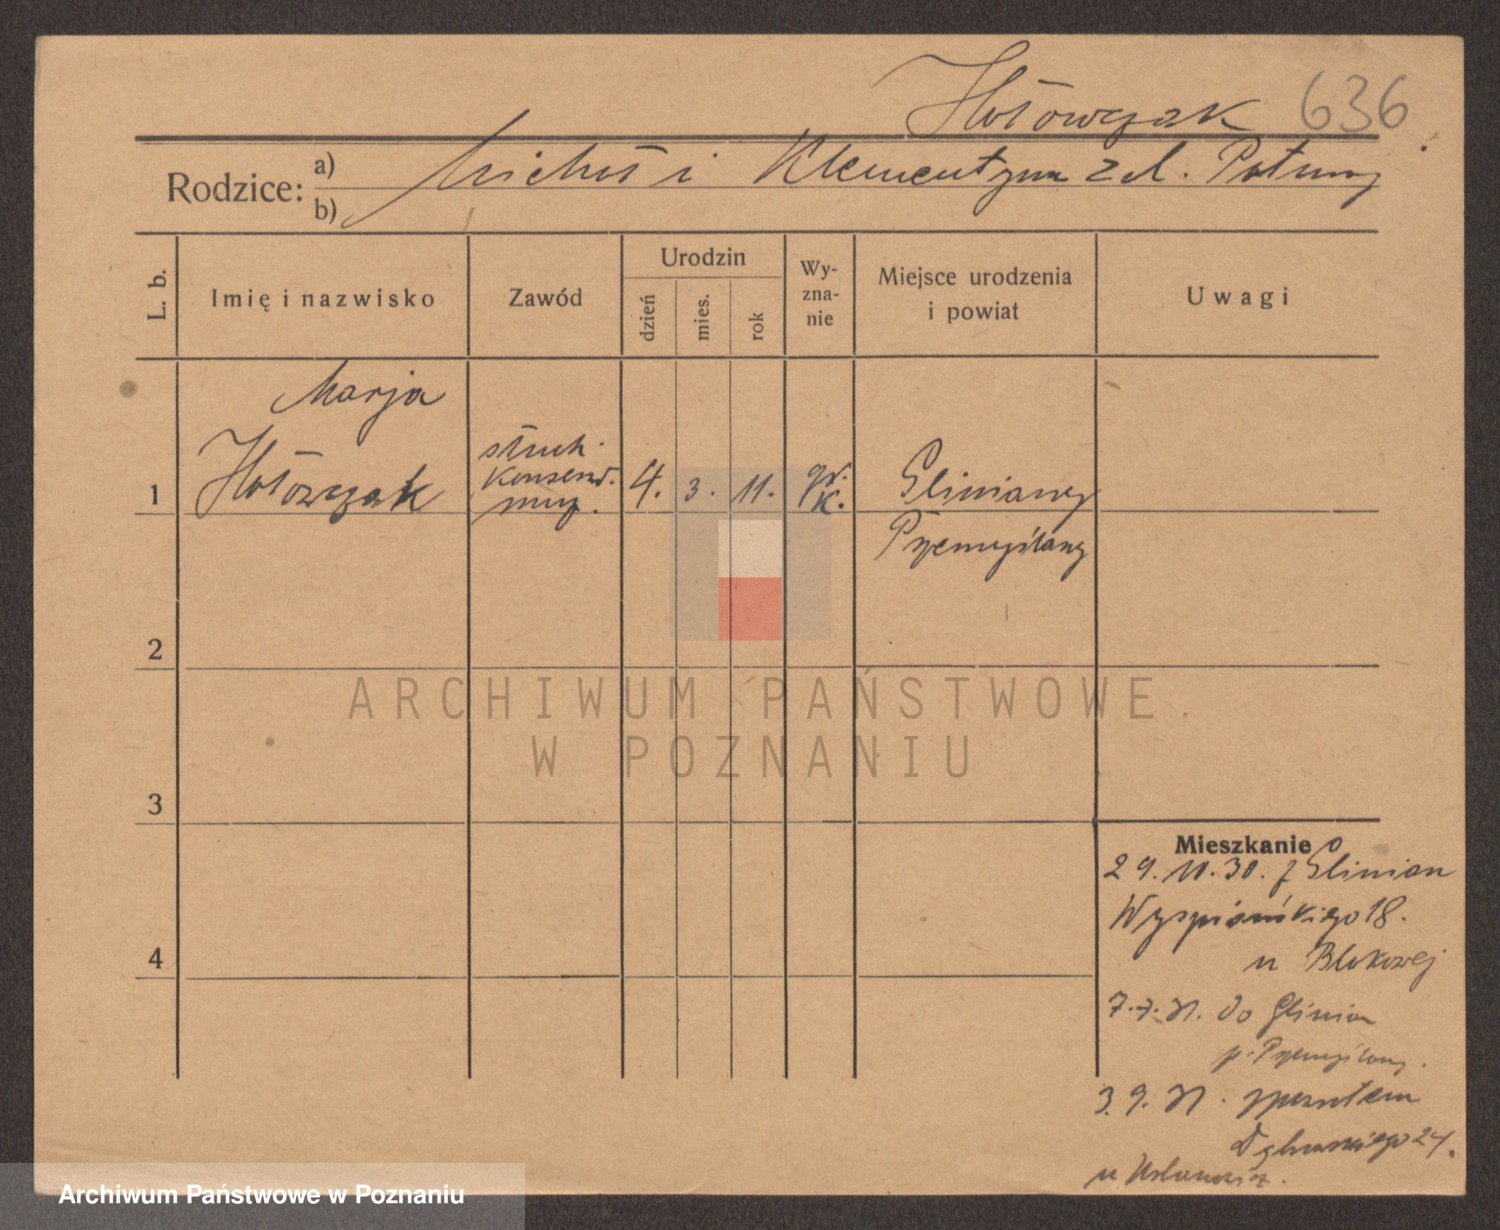 Hołowczak 636
Rodzice: a) Michał i Klementyna z d.
b)
L. b.
Imię i nazwisko
Zawód
Urodzin
dzień
mies.
rok
Wy-
zna-
nie
Miejsce urodzenia
i powiat
Uwagi
Marja
1 Hołowczak
słuch.
Konserw.
muz.
4. 3. 11.
gr.
K.
Gliniany
Przemyślany
2
3
4
ARCHIWUM PAŃSTWOWE
W POZNANIU
Mieszkanie
29.10.30. z Glinian
Wyspiańskiego 18.
u
7.7.31. do Glinian
p. Przemyślany.
3.9.31. z powrotem
24.
u
Archiwum Państwowe w Poznaniu